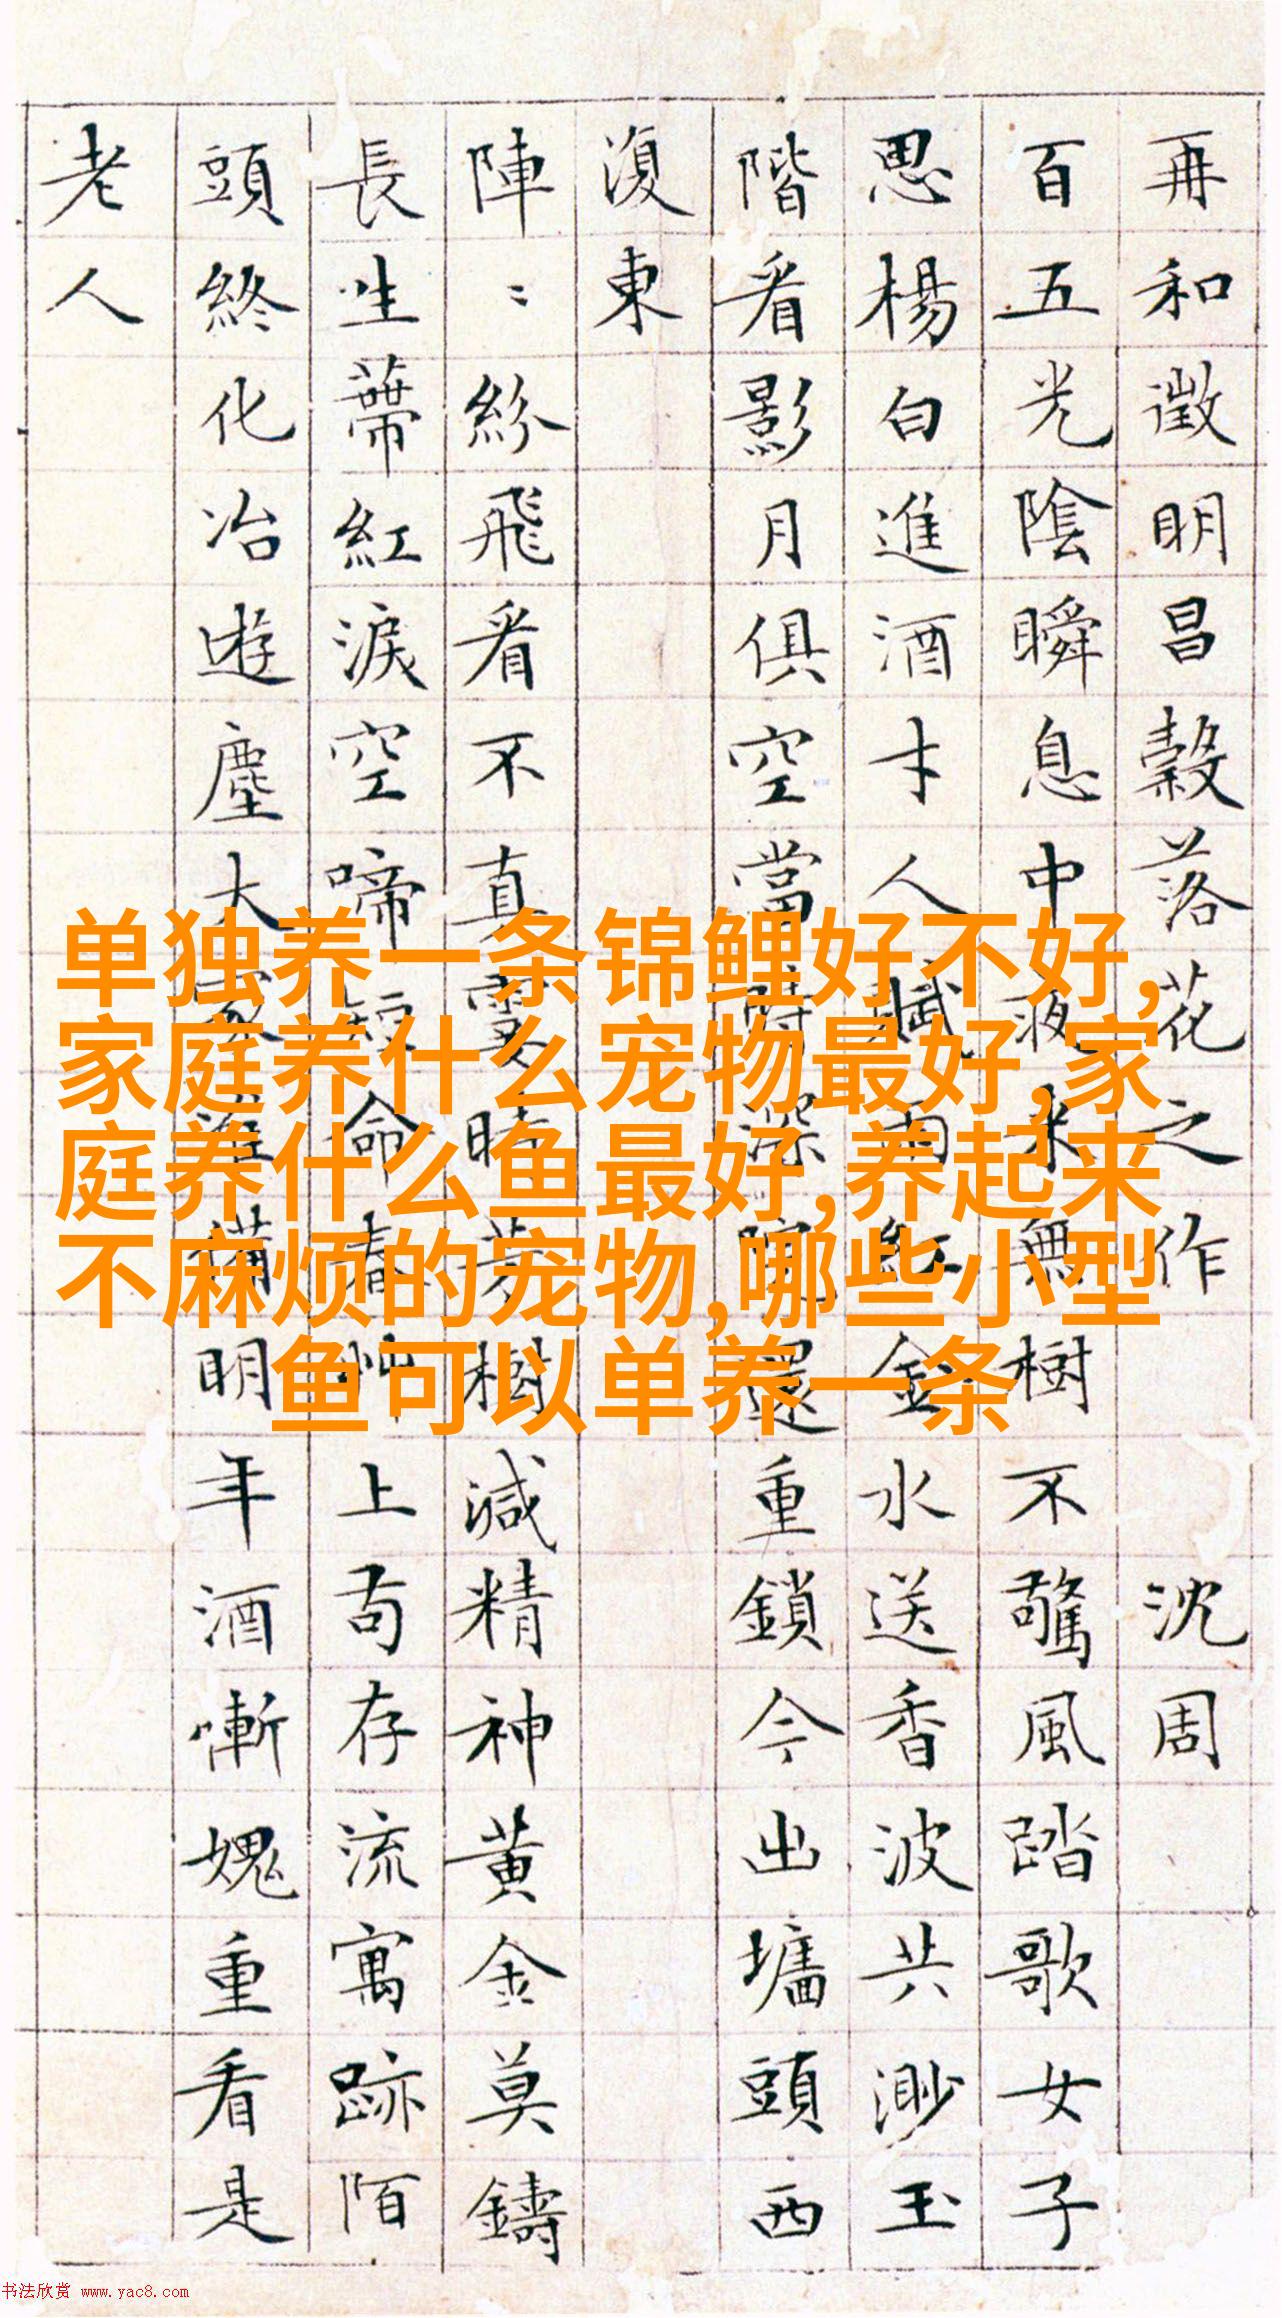 再和徵明昌穀落花之作 沈周
百五光陰瞬息中夜来無樹不驚風踏歌女子
思楊白進酒才人賦雨紅金水送香波共渺玉
階看影月俱空當時深院還重鎖今出墻頭西
復東
陣〻紛飛看不真霎時芳樹減精神黄金莫鑄
長生蔕紅淚空啼短命春艸上苟存流寓跡陌
頭終化冶遊塵大家準備明年酒慚愧重看是
老人
单独养一条锦鲤好不好,
家庭养什么宠物最好,家
庭养什么鱼最好,养起来
不麻烦的宠物,哪些小型
鱼可以单养一条
书法欣赏 www.yac8.com